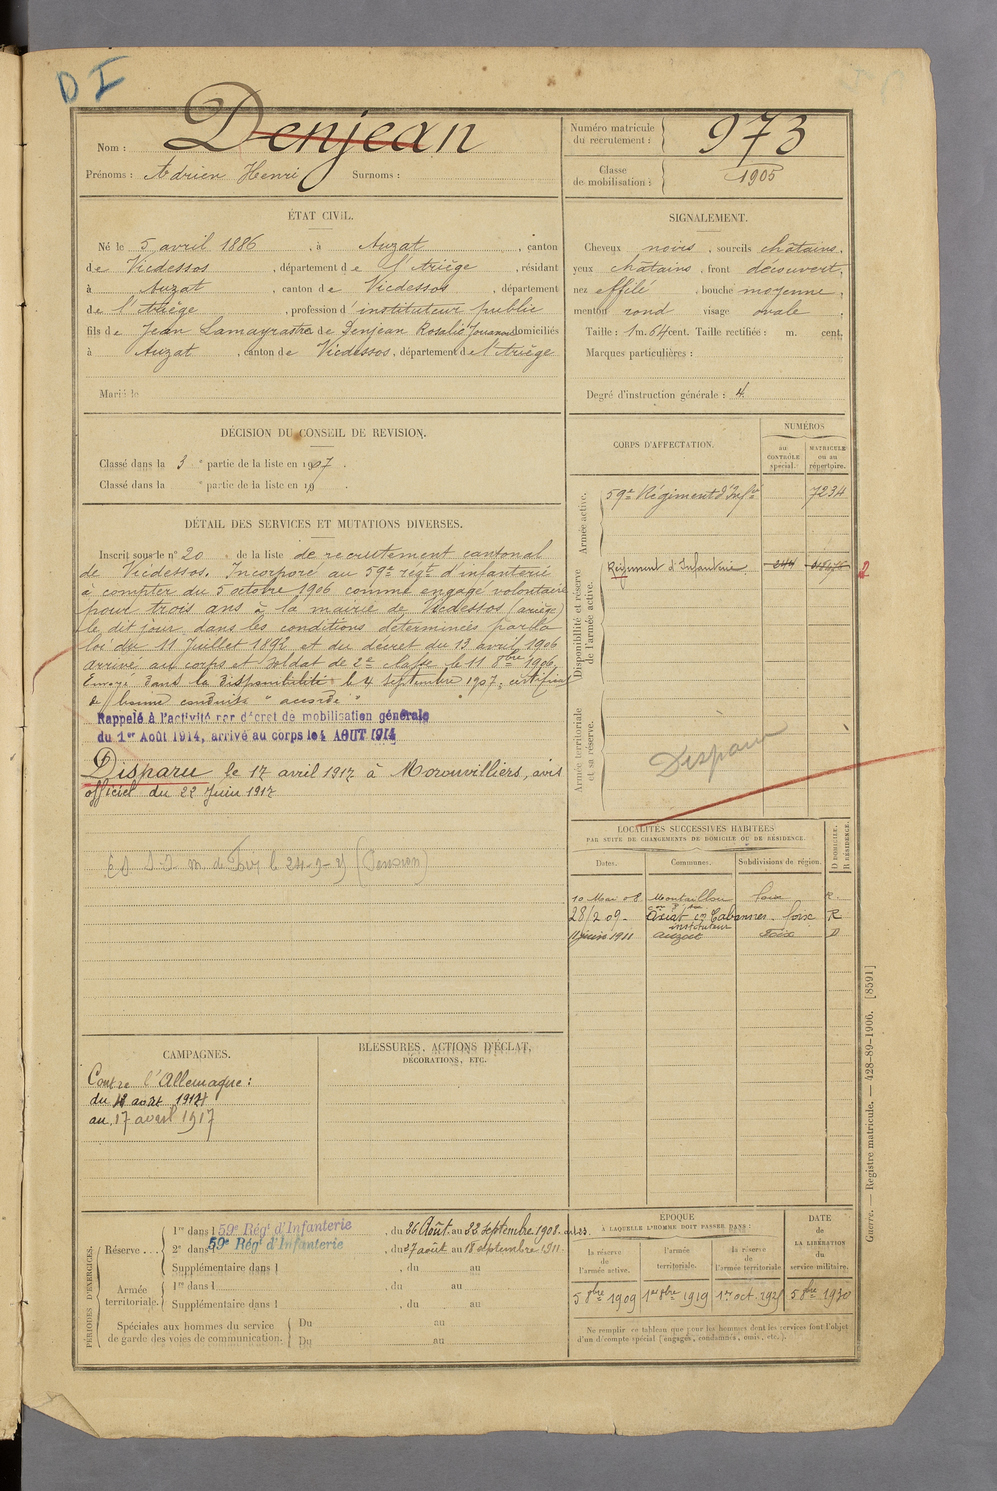 D I
Nom : Denjean
Prénoms : Adrien Henri Surnoms :
Numéro matricule du recrutement : 973
Classe de mobilisation : 1905
ÉTAT CIVIL.
Né le 5 avril 1886, à Auzat, canton
de Vicdessos, département de l'Ariège, résidant
à Auzat, canton de Vicdessos, département
de l'Ariège, profession d'instituteur public
fils de Jean Lamayrastre de Denjean Rosalie domiciliés
à Auzat, canton de Vicdessos, département de l'Ariège
Marié le
SIGNALEMENT.
Cheveux noirs, sourcils châtains,
yeux châtains, front découvert,
nez effilé, bouche moyenne,
menton rond visage ovale,
Taille : 1 m. 64 cent. Taille rectifiée : m. cent.
Marques particulières :
Degré d'instruction générale : 4
DÉCISION DU CONSEIL DE REVISION.
Classé dans la 3e partie de la liste en 1907.
Classé dans la e partie de la liste en 19 .
CORPS D'AFFECTATION.
NUMÉROS
au CONTRÔLE spécial.
MATRICULE ou au répertoire.
Armée active.
59e Régiment d'Infie 7234
Disponibilité et réserve de l'armée active.
Régiment d'Infanterie 244
2
Armée territoriale et sa réserve.
Disparu
DÉTAIL DES SERVICES ET MUTATIONS DIVERSES.
Inscrit sous le n° 20 de la liste de recrutement cantonal
de Vicdessos. Incorporé au 59e régt d'infanterie
à compter du 5 octobre 1906 comme engagé volontaire
pour trois ans à la mairie de Vicdessos (Ariège)
le dit jour dans les conditions déterminées par la
loi du 11 Juillet 1892 et du décret du 13 avril 1906
arrivé au corps et soldat de 2e classe le 11 8bre 1906.
Envoyé dans la disponibilité le 4 septembre 1907, certificat
de "bonne conduite" accordé
Rappelé à l'activité par décret de mobilisation générale
du 1er Août 1914, arrivé au corps le 4 AOUT 1914
Disparu le 17 avril 1917 à Moronvilliers, avis
officiel du 22 Juin 1917
(Pension)
LOCALITÉS SUCCESSIVES HABITÉES
PAR SUITE DE CHANGEMENTS DE DOMICILE OU DE RÉSIDENCE.
Dates. Communes. Subdivisions de région. D DOMICILE. R RÉSIDENCE.
10 Mai 08. Montaillou Foix R.
28/2 09 - Axiat Cabannes - Foix R
instituteur
11 juin 1911 Auzat Foix D
CAMPAGNES.
Contre l'Allemagne :
du 4 août 1914
au 17 avril 1917
BLESSURES, ACTIONS D'ÉCLAT,
DÉCORATIONS, ETC.
PÉRIODES D'EXERCICES.
Réserve...
1re dans l 59e Rég' d'Infanterie, du 26 Août au 22 septembre 1908.
2e dans l 59e Rég' d'Infanterie, du 27 août au 18 septembre 1911.
Supplémentaire dans l , du au
Armée territoriale.
1re dans l , du au
Supplémentaire dans l , du au
Spéciales aux hommes du service de garde des voies de communication.
Du au
Du au
EPOQUE
À LAQUELLE L'HOMME DOIT PASSER DANS :
la réserve de l'armée active.
l'armée territoriale.
la réserve de l'armée territoriale
DATE de LA LIBÉRATION du service militaire.
5 8bre 1909 1er 8bre 1919 1er oct. 1925 5 8bre 1930
Ne remplir ce tableau que pour les hommes dont les services font l'objet
d'un décompte spécial (engagés, condamnés, omis, etc.).
Guerre. — Registre matricule. — 428-89-1906. [8591]